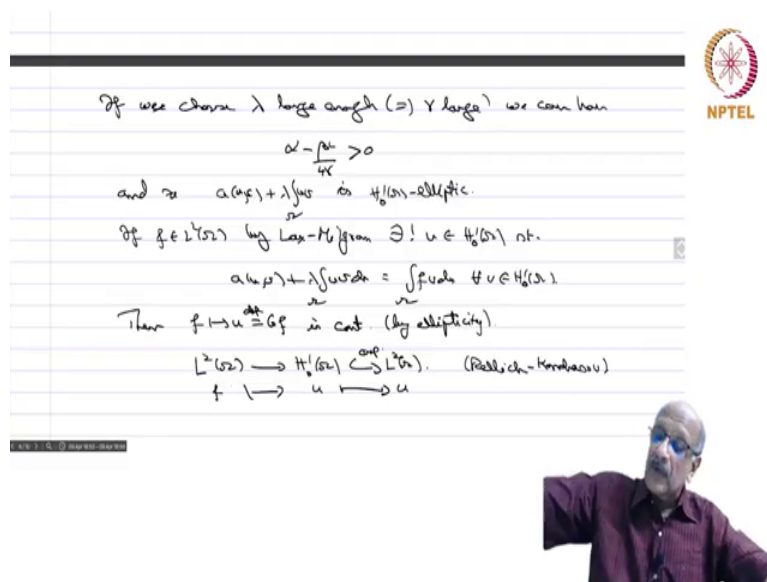 If we choose λ large enough (⇒ γ large) we can have
α − β²/4γ > 0
and so a(u,v) + λ∫uv is H₀¹(Ω)-elliptic.
Ω
If f ∈ L²(Ω) by Lax-Milgram ∃! u ∈ H₀¹(Ω) st.
a(u,v) + λ∫uv dx = ∫fv dx ∀ v ∈ H₀¹(Ω).
Ω Ω
Then f ↦ u def= Gf is cont. (by ellipticity).
L²(Ω) → H₀¹(Ω) ↪ L²(Ω). (Rellich-Kondrasov)
f ↦ u ↦ u
NPTEL